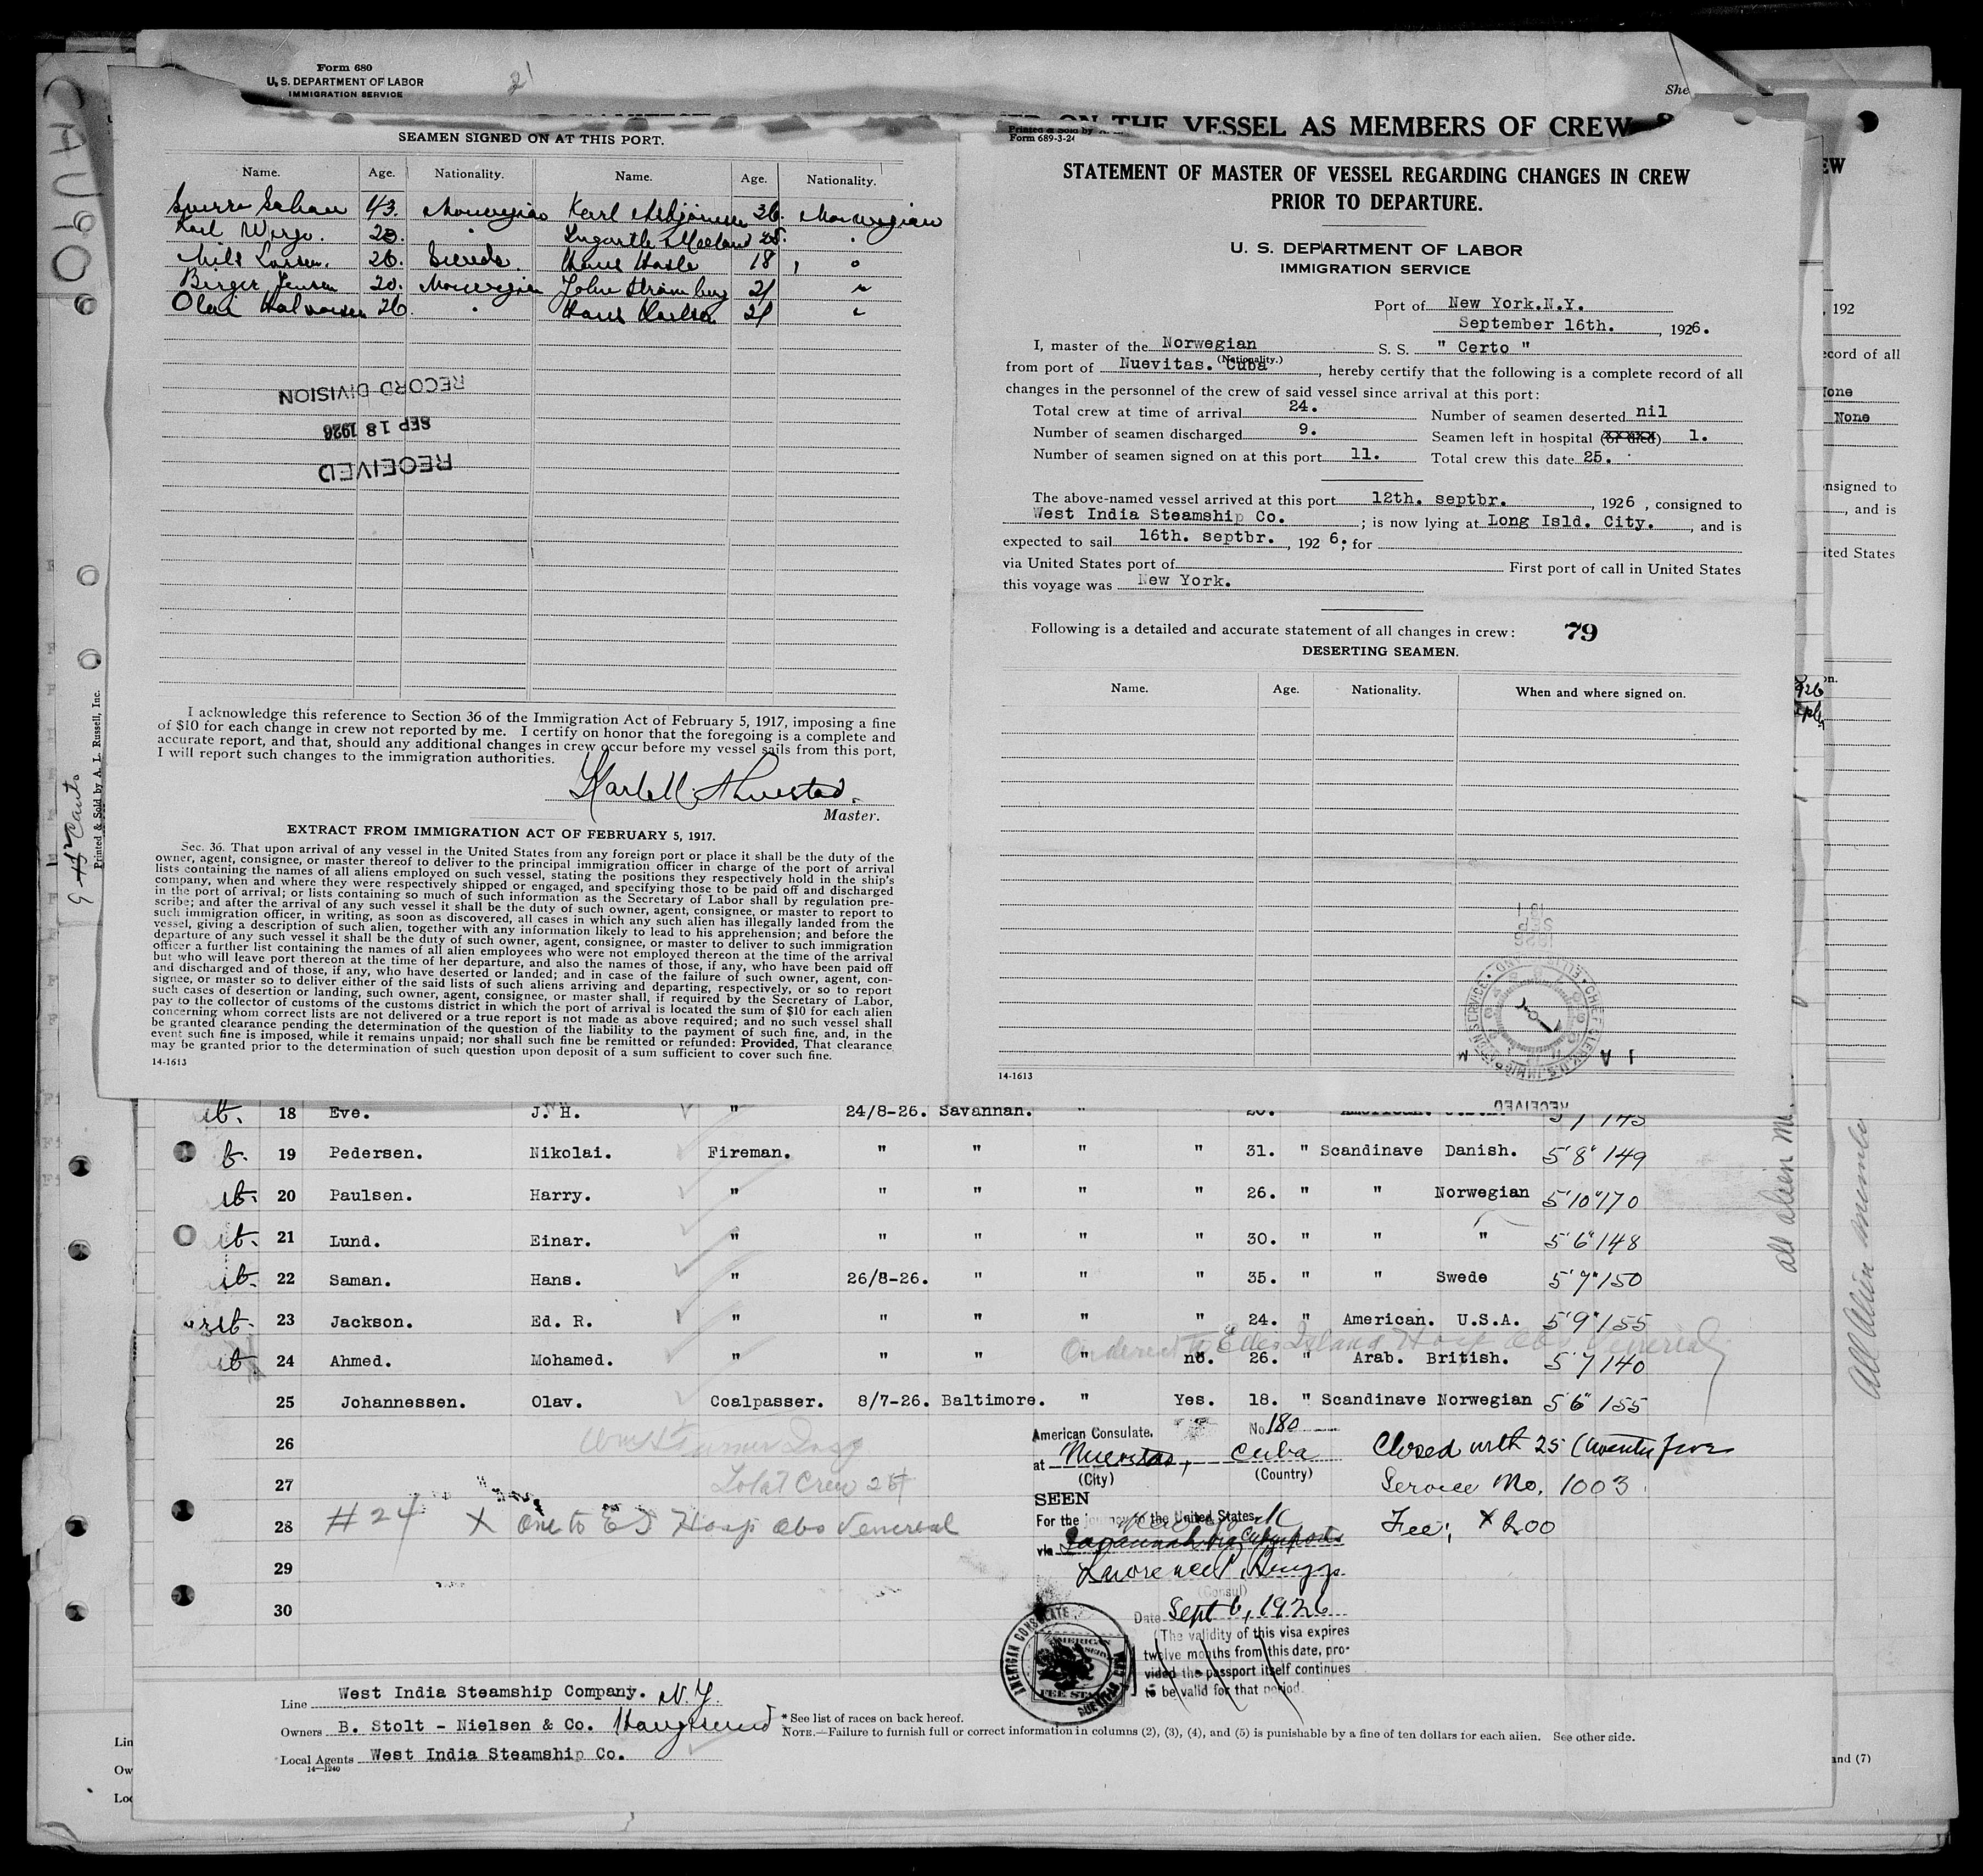 Form 680
U. S. DEPARTMENT OF LABOR
IMMIGRATION SERVICE
21
She
ON THE VESSEL AS MEMBERS OF CREW
SEAMEN SIGNED ON AT THIS PORT.
Name. Age. Nationality. Name. Age. Nationality.
43. Norwegian Karl 36. Norwegian
Karl 23. "
Nils Larsen. 26. Swede. Hans Hasle 18 "
Birger Jensen 20. Norwegian John Stromberg 21 "
Olai Halvorsen 26. " Hans Karlsen 21 "
RECORD DIVISION
SEP 18 1926
RECEIVED
I acknowledge this reference to Section 36 of the Immigration Act of February 5, 1917, imposing a fine
of $10 for each change in crew not reported by me. I certify on honor that the foregoing is a complete and
accurate report, and that, should any additional changes in crew occur before my vessel sails from this port,
I will report such changes to the immigration authorities.
Master.
EXTRACT FROM IMMIGRATION ACT OF FEBRUARY 5, 1917.
Sec. 36. That upon arrival of any vessel in the United States from any foreign port or place it shall be the duty of the
owner, agent, consignee, or master thereof to deliver to the principal immigration officer in charge of the port of arrival
lists containing the names of all aliens employed on such vessel, stating the positions they respectively hold in the ship's
company, when and where they were respectively shipped or engaged, and specifying those to be paid off and discharged
in the port of arrival; or lists containing so much of such information as the Secretary of Labor shall by regulation pre-
scribe; and after the arrival of any such vessel it shall be the duty of such owner, agent, consignee, or master to report to
such immigration officer, in writing, as soon as discovered, all cases in which any such alien has illegally landed from the
vessel, giving a description of such alien, together with any information likely to lead to his apprehension; and before the
departure of any such vessel it shall be the duty of such owner, agent, consignee, or master to deliver to such immigration
officer a further list containing the names of all alien employees who were not employed thereon at the time of the arrival
but who will leave port thereon at the time of her departure, and also the names of those, if any, who have been paid off
and discharged and of those, if any, who have deserted or landed; and in case of the failure of such owner, agent, con-
signee, or master so to deliver either of the said lists of such aliens arriving and departing, respectively, or so to report
such cases of desertion or landing, such owner, agent, consignee, or master shall, if required by the Secretary of Labor,
pay to the collector of customs of the customs district in which the port of arrival is located the sum of $10 for each alien
concerning whom correct lists are not delivered or a true report is not made as above required; and no such vessel shall
be granted clearance pending the determination of the question of the liability to the payment of such fine, and, in the
event such fine is imposed, while it remains unpaid; nor shall such fine be remitted or refunded: Provided, That clearance
may be granted prior to the determination of such question upon deposit of a sum sufficient to cover such fine.
14-1613
Printed & Sold by A. L. Russell, Inc.
Printed & Sold by A.
Form 689-3-24
STATEMENT OF MASTER OF VESSEL REGARDING CHANGES IN CREW
PRIOR TO DEPARTURE.
U. S. DEPARTMENT OF LABOR
IMMIGRATION SERVICE
Port of New York.N.Y.
September 16th. , 1926.
I, master of the Norwegian S. S. " Certo "
(Nationality.)
from port of Nuevitas. Cuba , hereby certify that the following is a complete record of all
changes in the personnel of the crew of said vessel since arrival at this port:
Total crew at time of arrival 24. Number of seamen deserted nil
Number of seamen discharged 9. Seamen left in hospital (or died) 1.
Number of seamen signed on at this port 11. Total crew this date 25.
The above-named vessel arrived at this port 12th. septbr. 1926 , consigned to
West India Steamship Co. ; is now lying at Long Isld. City. , and is
expected to sail 16th. septbr. , 192 6; for
via United States port of First port of call in United States
this voyage was New York.
Following is a detailed and accurate statement of all changes in crew: 79
DESERTING SEAMEN.
Name. Age. Nationality. When and where signed on.
1926
SEP
CHIEF CLERK, U.S. IMMIGRATION SERVICE · ELLIS ISLAND
14-1613
RECEIVED
EW
, 192
ecord of all
None
None
nsigned to
, and is
ited States
18 Eve. J. H. " 24/8-26. Savannah. "
19 Pedersen. Nikolai. Fireman. " " " " 31. " Scandinave Danish. 5'8" 149
20 Paulsen. Harry. " " " " " 26. " " Norwegian 5'10" 170
21 Lund. Einar. " " " " " 30. " " " 5'6" 148
22 Saman. Hans. " 26/8-26. " " " 35. " " Swede 5'7" 150
23 Jackson. Ed. R. " " " " " 24. " American. U.S.A. 5'9" 155
Ordered to Ellis Island Hosp obs Venereal
24 Ahmed. Mohamed. " " " " no. 26. " Arab. British. 5'7 140
25 Johannessen. Olav. Coalpasser. 8/7-26. Baltimore. " Yes. 18. " Scandinave Norwegian 5'6" 155
26
27 Total Crew
28 #24 X One to E I Hosp obs Venereal
29
30
American Consulate. No. 180
at Nuevitas, Cuba
(City) (Country)
SEEN
For the journey to the United States
via
(Consul)
Date Sept 6, 1926
(The validity of this visa expires
twelve months from this date, pro-
vided the passport itself continues
to be valid for that period.
AMERICAN CONSULATE
Closed with 25 (twenty five
Service No. 1003
Fee; 2.00
All Alien
All Alien
Line West India Steamship Company. N.Y.
Owners B. Stolt - Nielsen & Co. Haugesund
Local Agents West India Steamship Co.
14—1240
* See list of races on back hereof.
NOTE.—Failure to furnish full or correct information in columns (2), (3), (4), and (5) is punishable by a fine of ten dollars for each alien. See other side.
and (7)
Lin
Ow
Loc